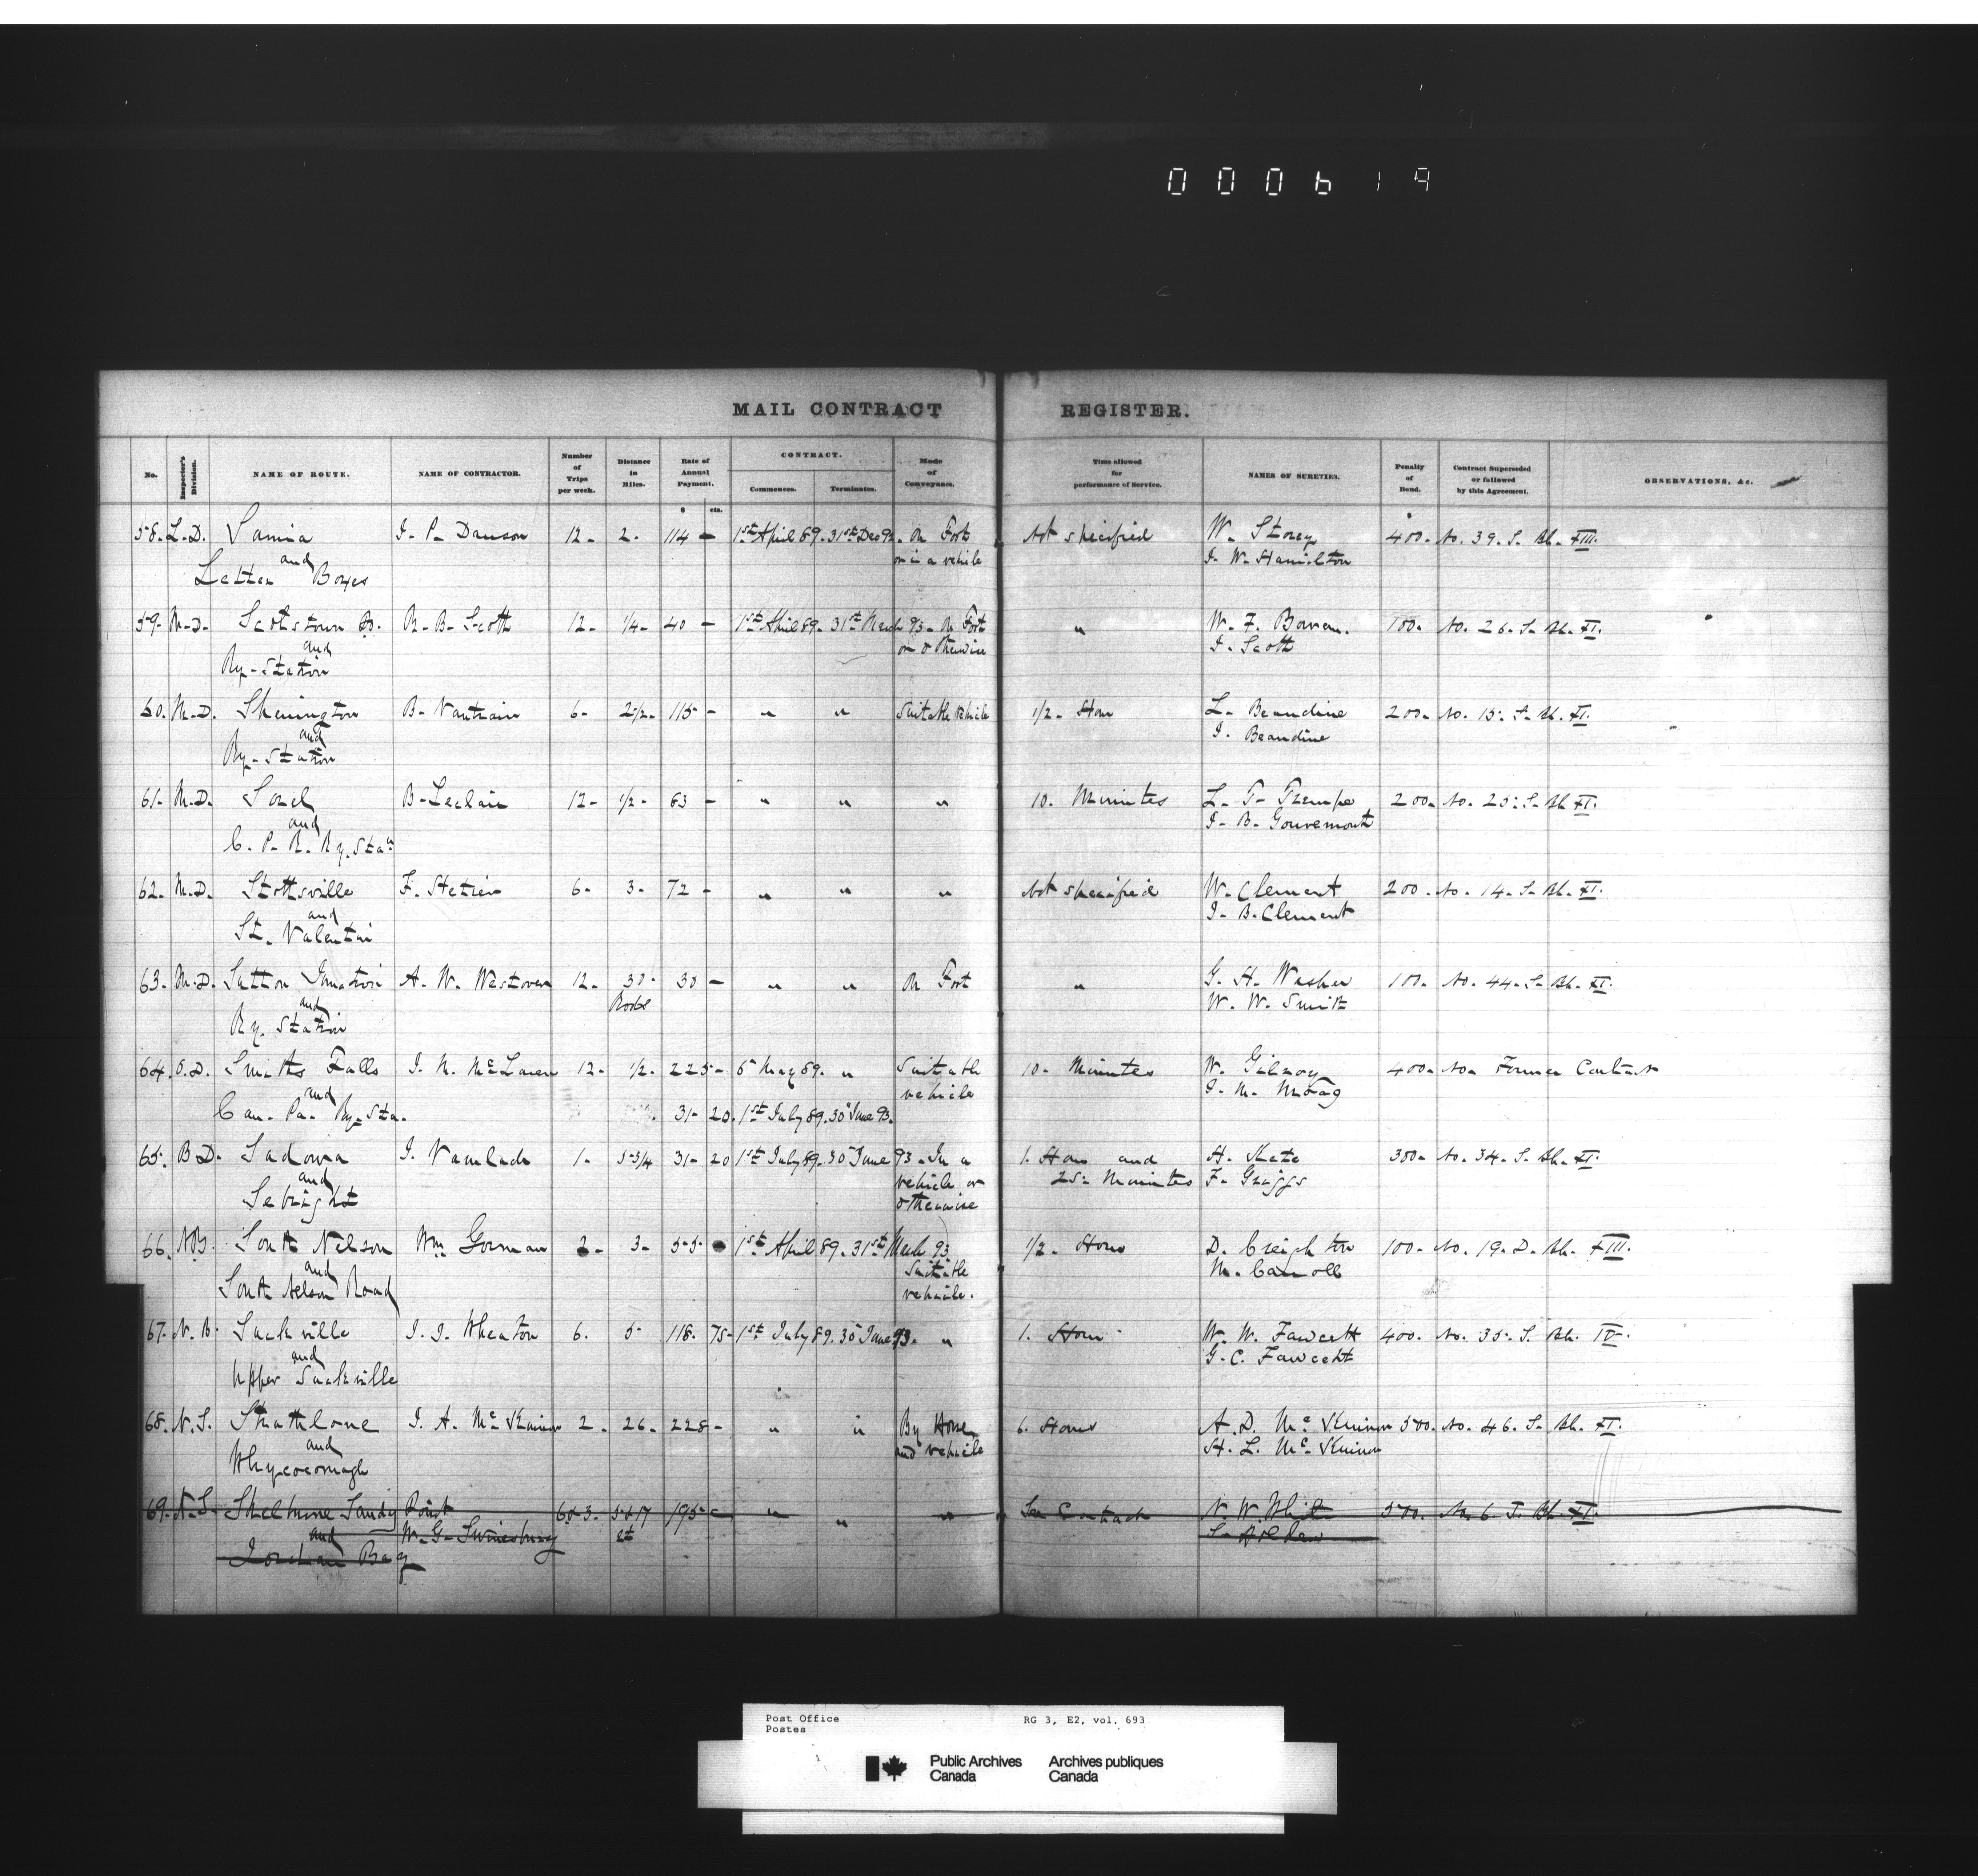 000619
MAIL CONTRACT REGISTER.
No. Inspector's Division. NAME OF ROUTE. NAME OF CONTRACTOR. Number of Trips per week. Distance in Miles. Rate of Annual Payment. CONTRACT. Commences. Terminates. Mode of Conveyance. Time allowed for performance of Service. NAMES OF SURETIES. Penalty of Bond. Contract Superseded or followed by this Agreement. OBSERVATIONS, &c.
$ cts. $
58. L.D. Sarnia J. P. Dawson 12. 2. 114 - 1st April 89. 31st Dec 92. On Foot Not specified W. Storey 400. No. 39. S. Bk. XIII.
and or in a vehicle J. W. Hamilton
Letter Boxes
59. M.D. Scotstown R. B. Scott 12. 1/4. 40 - 1st April 89. 31st March 93. On Foot " W. F. Bowen. 100. No. 26. S. Bk. XI.
and or otherwise J. Scott
Ry. Station
60. M.D. Sherrington B. 6. 2 1/2. 115 - " " Suitable vehicle 1/2. Hour L. Beaudine 200. No. 15. S. Bk. XI.
and J. Beaudine
Ry. Station
61. M.D. Sorel B. Leclair 12. 1/2. 63 - " " " 10. Minutes L. T. Trempe 200. No. 25. S. Bk. XI.
and J. B.
C. P. R. Ry. Stan
62. M.D. Stottsville F. 6. 3. 72 - " " " Not specified W. Clement 200. No. 14. S. Bk. XI.
and J. B. Clement
St. Valentin
63. M.D. Sutton Junction A. W. Westover 12. 30. 30 - " " On Foot " G. H. 100. No. 44. S. Bk. XI.
and Rods W. W. Smith
Ry. Station
64. O.D. Smiths Falls J. N. McLaren 12. 1/2. 225 - 6 May 89. " Suitable 10. Minutes W. Gilroy 400. No Former Contract
and vehicle J. M. Moag
Can. Pa. Ry. Sta. 31. 20. 1st July 89. 30 June 93.
65. B.D. Sadowa J. 1. 5 3/4 31. 20 1st July 89. 30 June 93. In a 1. Hour and H. Skate 300. No. 34. S. Bk. XI.
and vehicle or 25. Minutes F. Griggs
Sebright otherwise
66. N.B. South Nelson Wm. Gorman 2. 3. 55. 1st April 89. 31st March 93 1/2. Hour D. Creighton 100. No. 19. D. Bk. XIII.
and Suitable M. Carroll
South Nelson Road vehicle.
67. N.B. Sackville J. J. Wheaton 6. 5 118. 75 - 1st July 89. 30 June 93. " 1. Hour W. W. Fawcett 400. No. 35. S. Bk. IV.
and G. C. Fawcett
Upper Sackville
68. N.S. Strathlorne J. A. McKinnon 2. 26. 228 - " " By Horse 6. Hours A. D. McKinnon 500. No. 46. S. Bk. XI.
and and vehicle H. L. McKinnon
Whycocomagh
69. N.S. Shelburne Sandy Point 6 & 3. 5 & 17 195 - " " " See Contract N. W. White 500. No. 6. J. Bk. XI.
and W. G. Swinesburg
Jordan Bay
Post Office RG 3, E2, vol. 693
Postes
Public Archives Archives publiques
Canada Canada